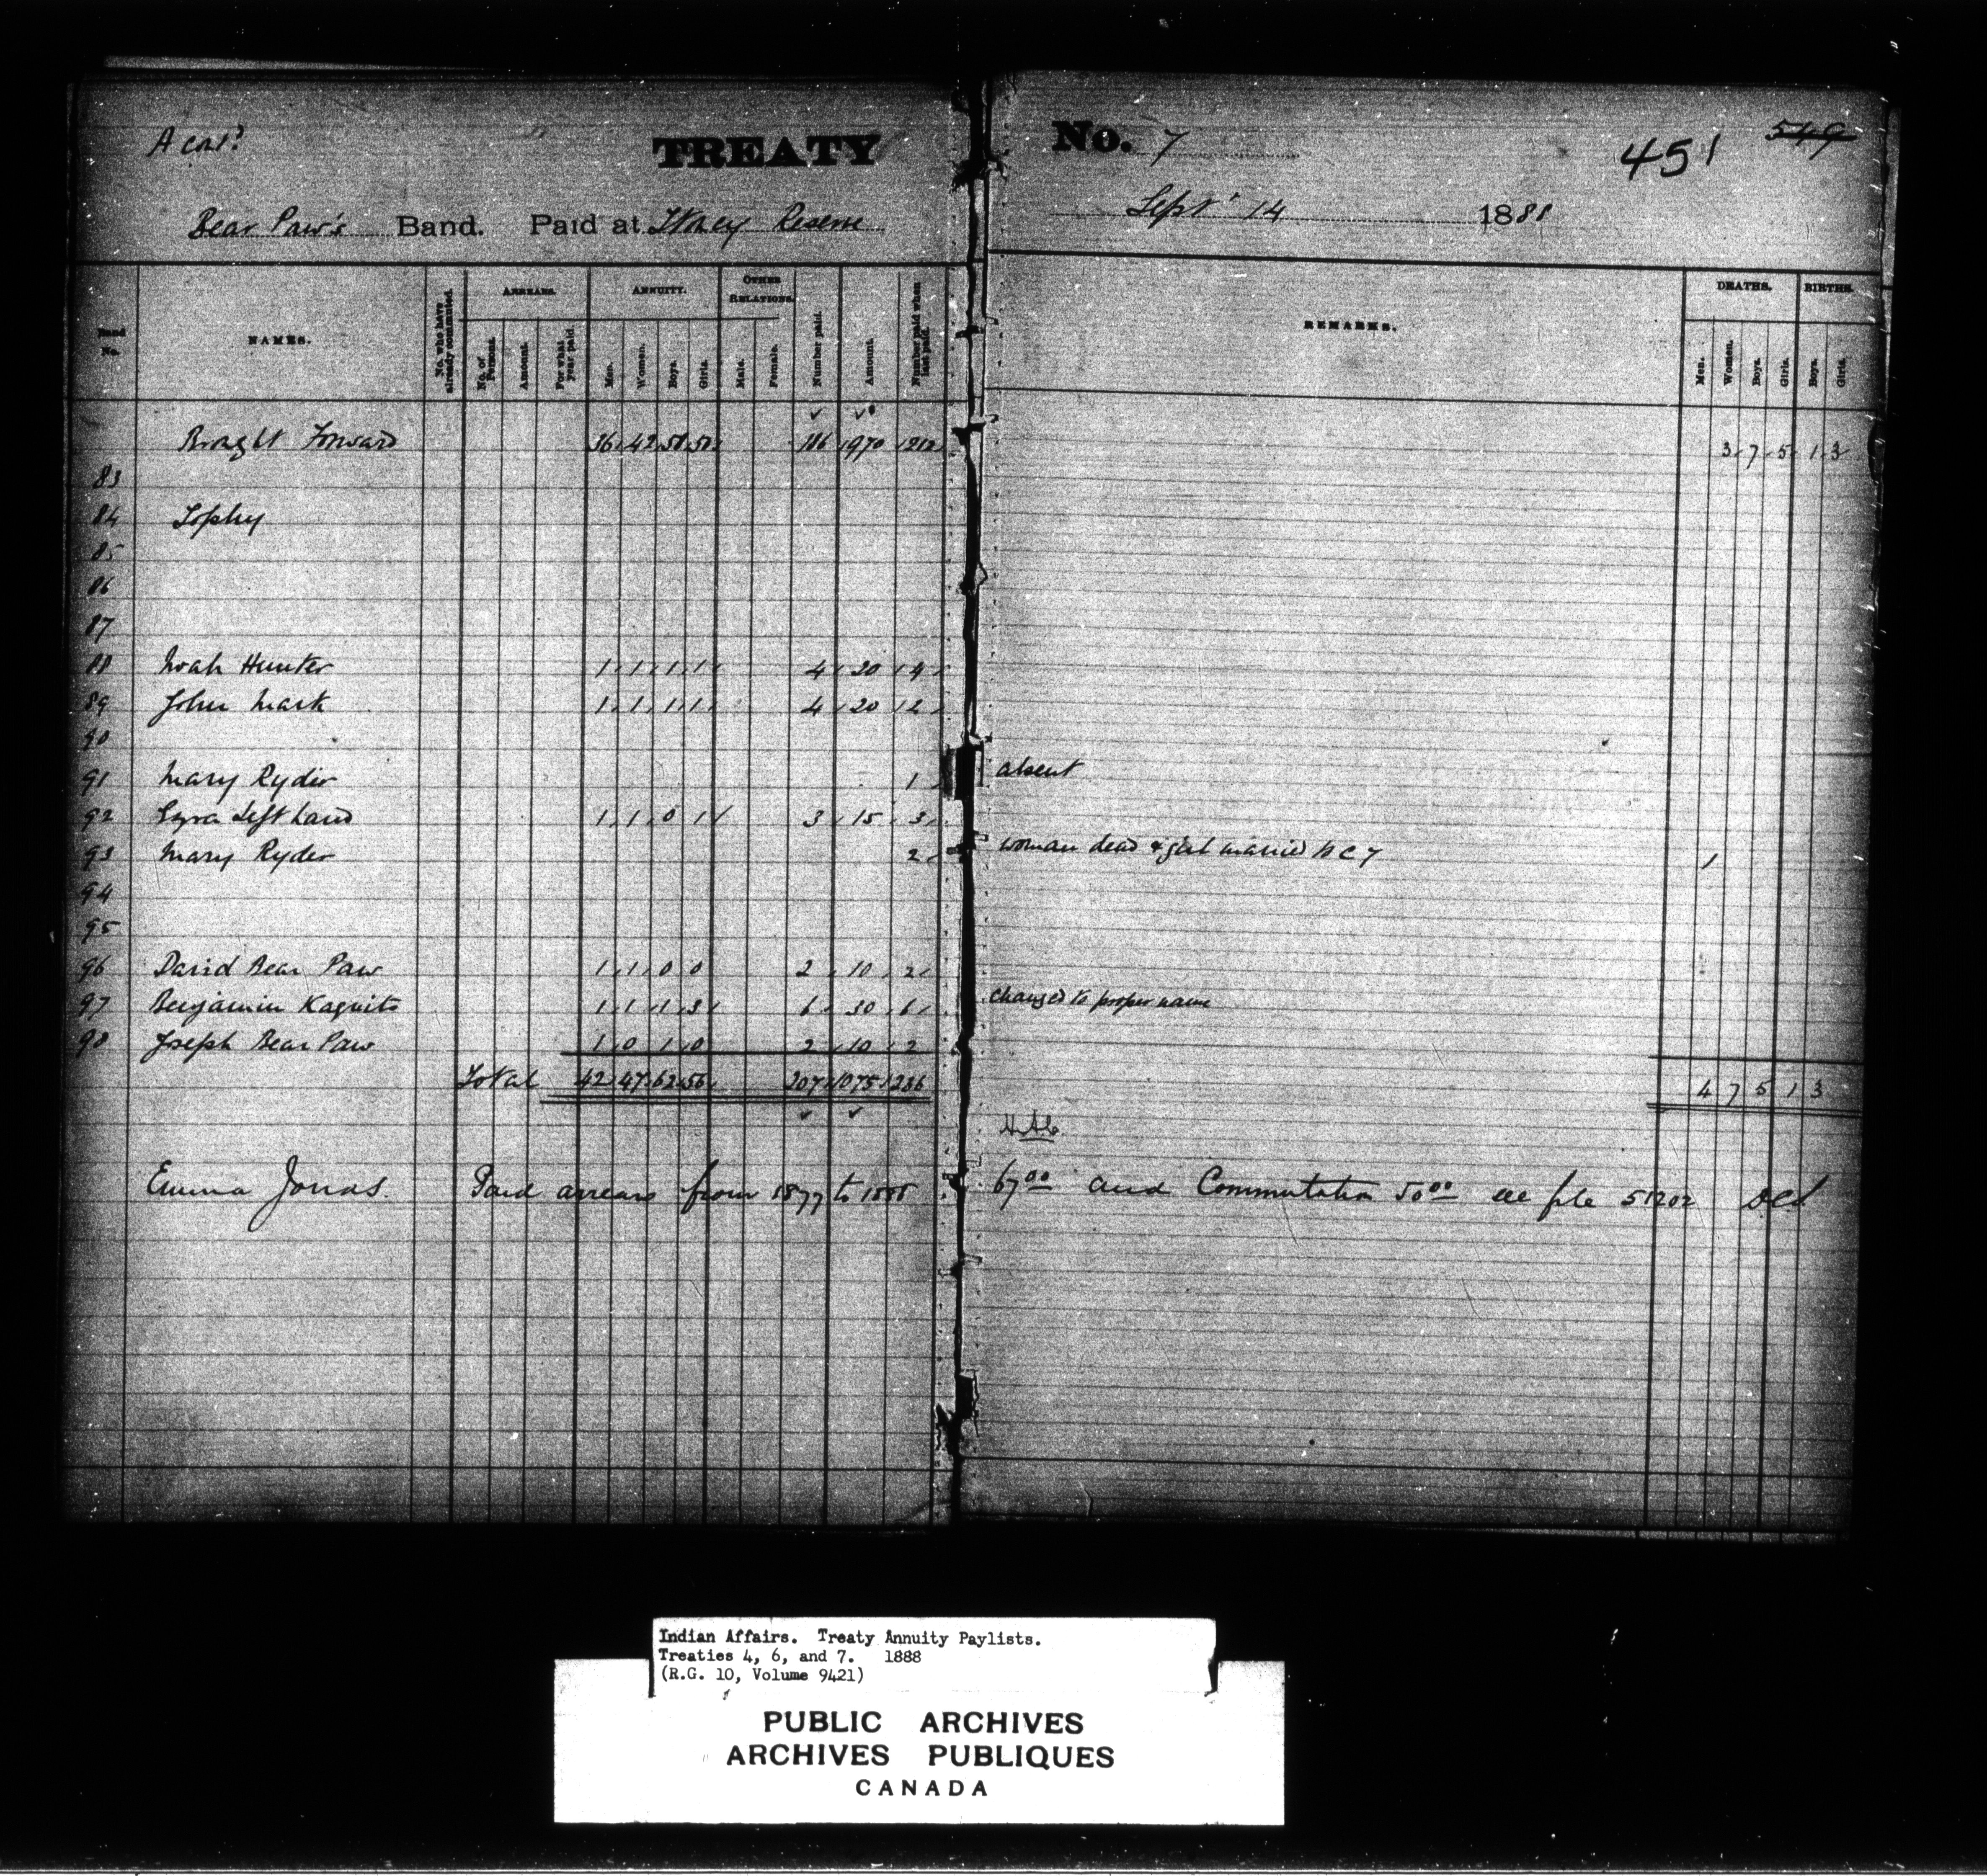 TREATY No. 7 451 549
Bear Paw's Band. Paid at Stoney Reserve Sept' 14 1888
Band No. NAMES. No. who have already commuted. ARREARS. No. of Persons. Amount. For what year paid. ANNUITY. Men. Women. Boys. Girls. OTHER RELATIONS. Male. Female. Number paid. Amount. Number paid when last paid. REMARKS. DEATHS. Men. Women. Boys. Girls. BIRTHS. Boys. Girls.
Brought Forward 36 42 58 50 186 970 212 3 7 5 1 3
83
84 Sophy
85
86
87
88 Noah Hunter 1 1 1 1 4 20 4
89 John Mark 1 1 1 1 4 20 2
90
91 Mary Ryder 1 absent
92 Ezra Left hand 1 1 0 1 3 15 3
93 Mary Ryder 2 woman dead & girl married 1
94
95
96 David Bear Paw 1 1 0 0 2 10 2
97 Benjamin Kaquits 1 1 1 3 6 30 6 changed to proper name
98 Joseph Bear Paw 1 0 1 0 2 10 2
Total 42 47 62 56 207 1075 236 4 7 5 1 3
Emma Jonas. Paid arrears from 1877 to 1888 67.00 and Commutation 50.00 see file 51202
Indian Affairs. Treaty Annuity Paylists.
Treaties 4, 6, and 7. 1888
(R.G. 10, Volume 9421)
PUBLIC ARCHIVES
ARCHIVES PUBLIQUES
CANADA